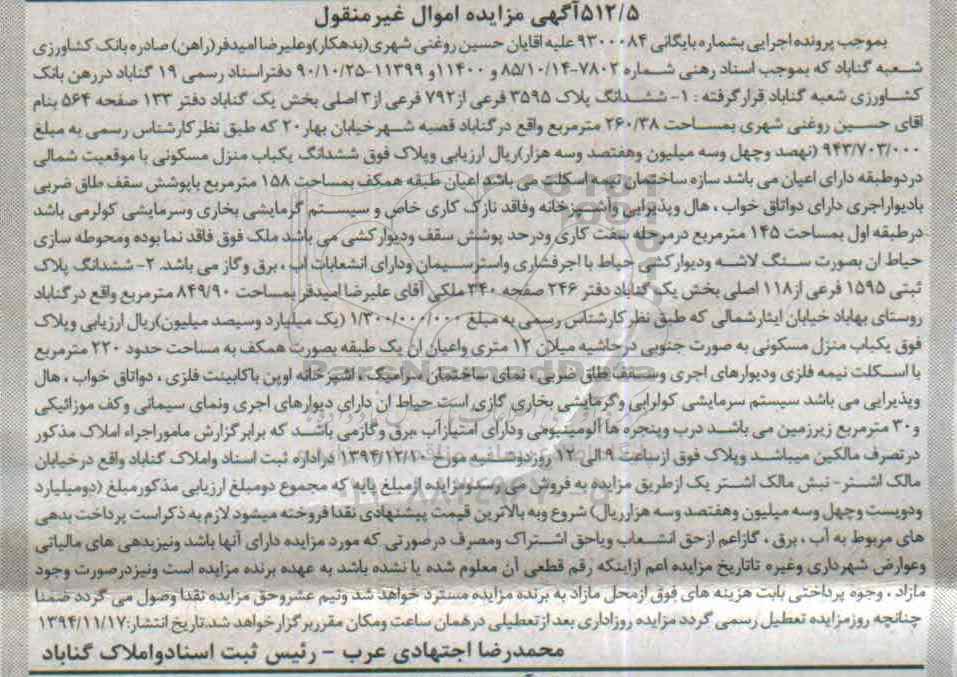 ۵۱۲/۵آگهی مزایده اموال غیرمنقول
بموجب پرونده اجرایی بشماره بایگانی ۹۳۰۰۰۸۴ علیه اقایان حسین روغنی شهری(بدهکار)وعلیرضا امیدفر(راهن) صادره بانک کشاورزی
شعبه گناباد که بموجب اسناد رهنی شماره ۷۸۰۲-۸۵/۱۰/۱۴ و ۱۱۴۰۰و ۱۱۳۹۹-۹۰/۱۰/۲۵ دفتراسناد رسمی ۱۹ گناباد دررهن بانک
کشاورزی شعبه گناباد قرارگرفته : ۱- ششدانگ پلاک ۳۵۹۵ فرعی از۷۹۲ فرعی از۳ اصلی بخش یک گناباد دفتر ۱۳۳ صفحه ۵۶۴ بنام
اقای حسین روغنی شهری بمساحت ۲۶۰/۳۸ مترمربع واقع درگناباد قصبه شهرخیابان بهار۲۰ که طبق نظرکارشناس رسمی به مبلغ
۹۴۳/۷۰۳/۰۰۰ (نهصد وچهل وسه میلیون وهفتصد وسه هزار)ریال ارزیابی وپلاک فوق ششدانگ یکباب منزل مسکونی با موقعیت شمالی
دردوطبقه دارای اعیان می باشد سازه ساختمان نیمه اسکلت می باشد اعیان طبقه همکف بمساحت ۱۵۸ مترمربع باپوشش سقف طاق ضربی
بادیواراجری دارای دواتاق خواب ، هال وپذیرایی وآشپزخانه وفاقد نازک کاری خاص و سیستم گرمایشی بخاری وسرمایشی کولرمی باشد
درطبقه اول بمساحت ۱۴۵ مترمربع درمرحله سفت کاری ودرحد پوشش سقف ودیوارکشی می باشد ملک فوق فاقد نما بوده ومحوطه سازی
حیاط ان بصورت سنگ لاشه ودیوارکشی حیاط با اجرفشاری واسترسیمان ودارای انشعابات اب ، برق و گاز می باشد. ۲- ششدانگ پلاک
ثبتی ۱۵۹۵ فرعی از۱۱۸ اصلی بخش یک گناباد دفتر ۲۴۶ صفحه ۳۴۰ ملکی آقای علیرضا امیدفر بمساحت ۸۴۹/۹۰ مترمربع واقع درگناباد
روستای بهاباد خیابان ایثارشمالی که طبق نظرکارشناس رسمی به مبلغ ۱/۳۰۰/۰۰۰/۰۰۰ (یک میلیارد وسیصد میلیون)ریال ارزیابی وپلاک
فوق یکباب منزل مسکونی به صورت جنوبی درحاشیه میلان ۱۲ متری واعیان ان یک طبقه بصورت همکف به مساحت حدود ۲۲۰ مترمربع
با اسکلت نیمه فلزی ودیوارهای اجری وسقف طاق ضربی ، نمای ساختمان سرامیک ، اشپزخانه اوپن باکابینت فلزی ، دواتاق خواب ، هال
وپذیرایی می باشد سیستم سرمایشی کولرابی وگرمایشی بخاری گازی است حیاط ان دارای دیوارهای اجری ونمای سیمانی وکف موزائیکی
و۳۰ مترمربع زیرزمین می باشد درب وپنجره ها آلومینیومی ودارای امتیازآب ،برق وگازمی باشد که برابرگزارش ماموراجراء املاک مذکور
درتصرف مالکین میباشد وپلاک فوق ازساعت ۹ الی ۱۲ روزدوشنبه مورخ ۱۳۹۴/۱۲/۱۰ دراداره ثبت اسناد واملاک گناباد واقع درخیابان
مالک اشتر- نبش مالک اشتر یک ازطریق مزایده به فروش می رسد.مزایده ازمبلغ پایه که مجموع دومبلغ ارزیابی مذکورمبلغ (دومیلیارد
ودویست وچهل وسه میلیون وهفتصد وسه هزارریال) شروع وبه بالاترین قیمت پیشنهادی نقدا فروخته میشود لازم به ذکراست پرداخت بدهی
های مربوط به آب ، برق ، گازاعم ازحق انشعاب ویاحق اشتراک ومصرف درصورتی که مورد مزایده دارای آنها باشد ونیزبدهی های مالیاتی
وعوارض شهرداری وغیره تاتاریخ مزایده اعم ازاینکه رقم قطعی آن معلوم شده یا نشده باشد به عهده برنده مزایده است ونیزدرصورت وجود
مازاد ، وجوه پرداختی بابت هزینه های فوق ازمحل مازاد به برنده مزایده مسترد خواهد شد ونیم عشروحق مزایده نقدا وصول می گردد ضمنا
چنانچه روزمزایده تعطیل رسمی گردد مزایده روزاداری بعد ازتعطیلی درهمان ساعت ومکان مقرربرگزارخواهد شد.تاریخ انتشار:۱۳۹۴/۱۱/۱۷
محمدرضا اجتهادی عرب - رئیس ثبت اسنادواملاک گناباد